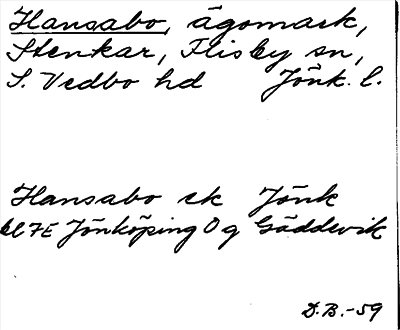 Hansabo, ägomark,
Stenkar, Flisby sn,
S. Vedbo hd Jönk. l.
Hansabo ek Jönk
bl 7E Jönköping Og Gäddevik
D.B.-59